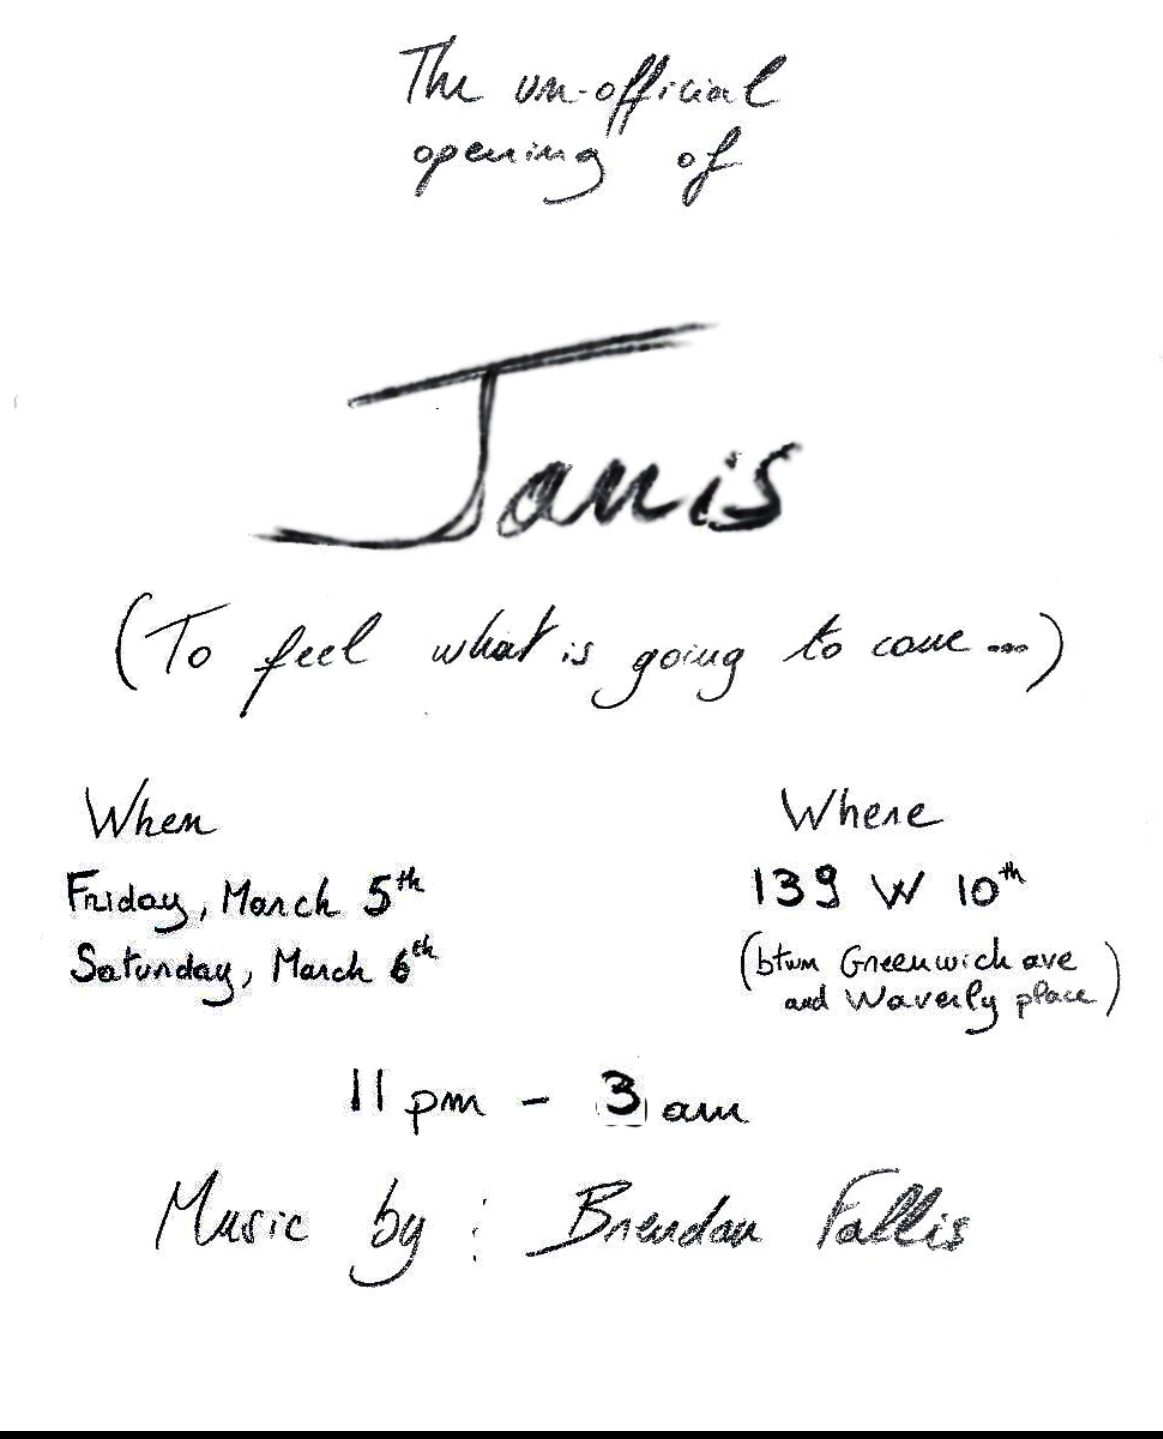 The un-official
opening of
Janis
(To feel what is going to come...)
When
Friday, March 5th
Saturday, March 6th
Where
139 W 10th
(btwn Greenwich ave
and Waverly place)
11 pm - 3 am
Music by: Brendan Fallis